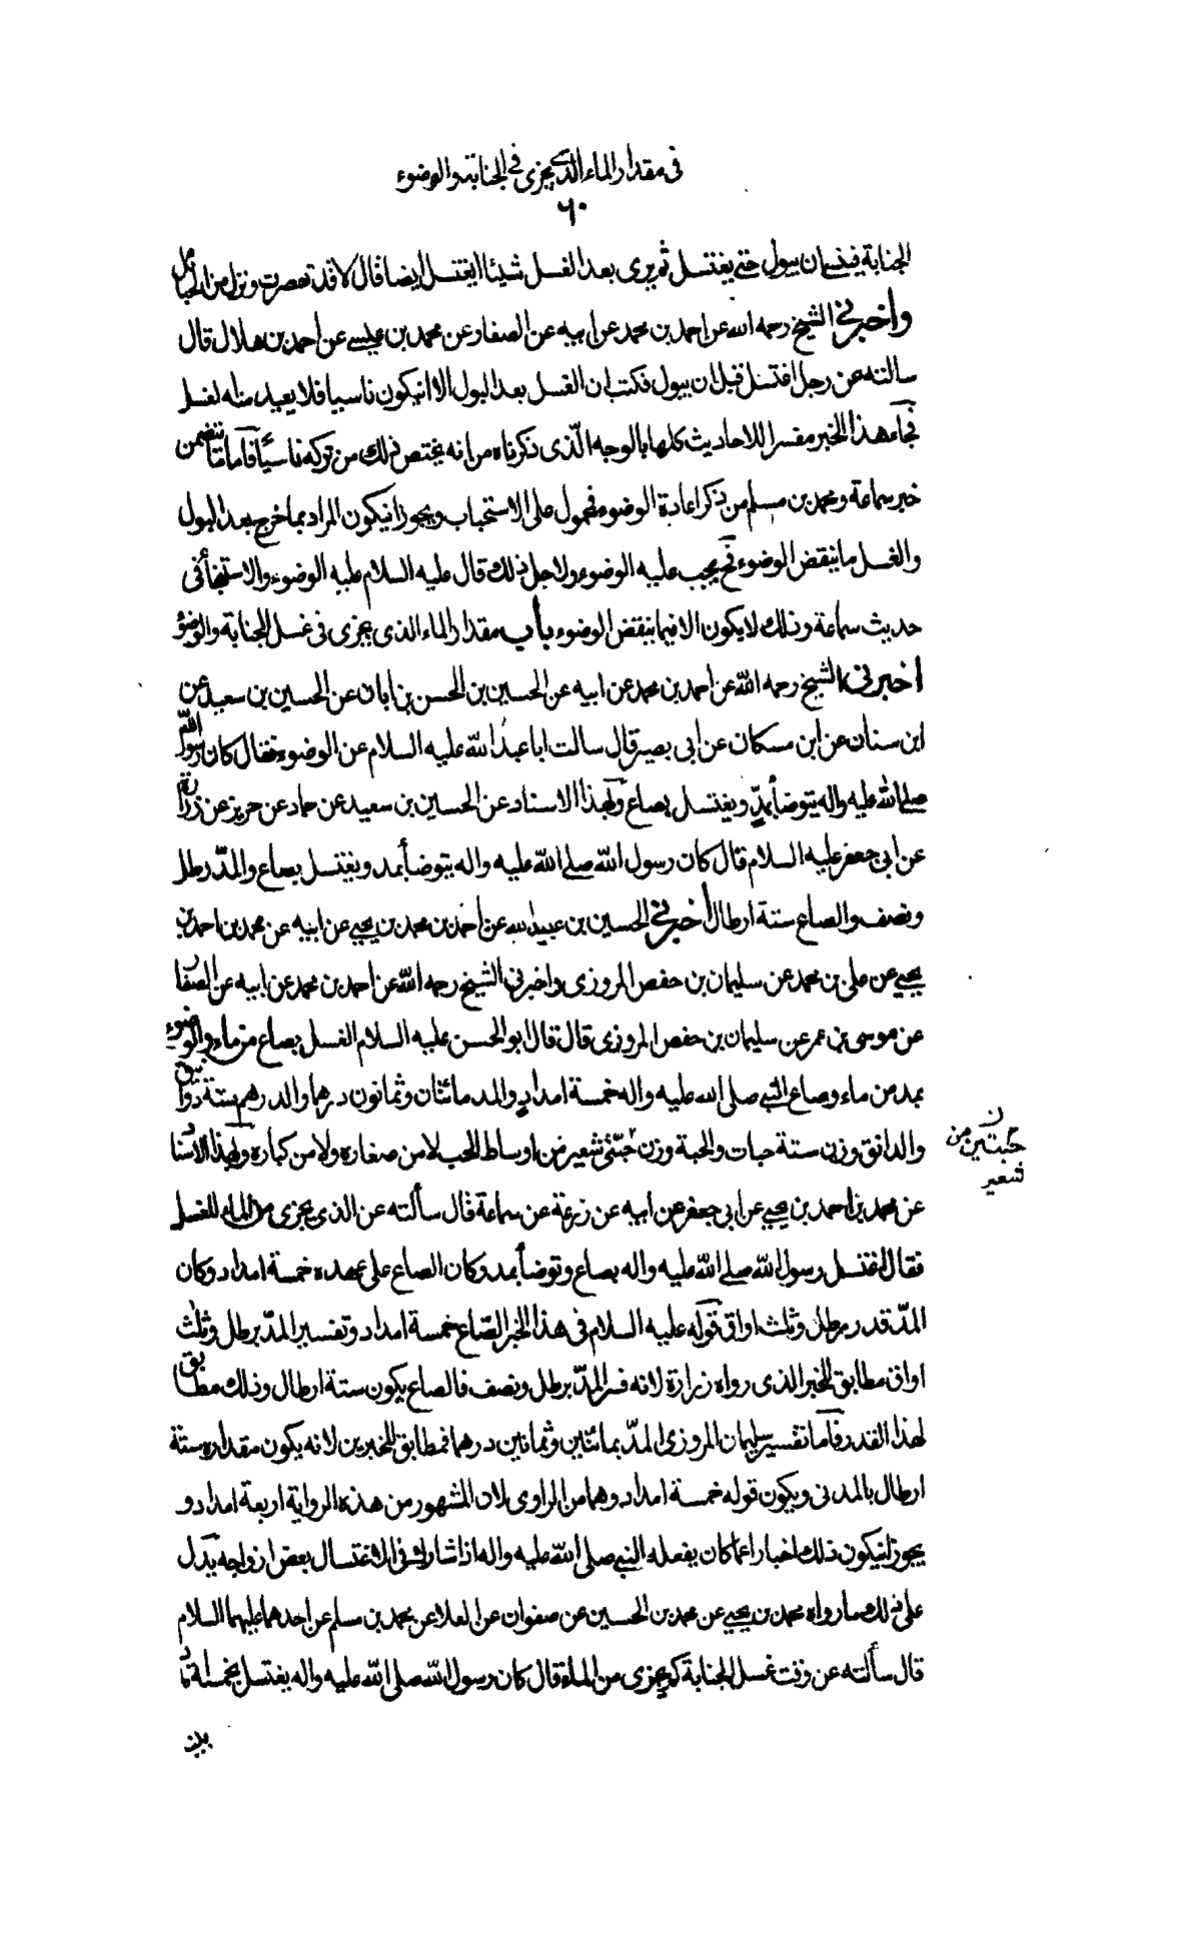 فى مقدار الماء الذى يجزى فى الجنابة والوضوء
٦٠
الجنابة فينسى ان يبول حتى يغتسل ثم يرى بعد الغسل شيئا ايغتسل ايضا قال لا قد تعصرت ونزل من الحبائل
واخبرنى الشيخ رحمه الله عن احمد بن محمد عن ابيه عن الصفار عن محمد بن عيسى عن احمد بن هلال قال
سالته عن رجل اغتسل قبل ان يبول فكتب ان الغسل بعد البول الا ان يكون ناسيا فلا يعيد منه الغسل
فجاء هذا الخبر مفسرا للاحاديث كلها بالوجه الذى ذكرناه من انه يختص ذلك من تركه ناسيا فاما ما تتضمن
خبر سماعة ومحمد بن مسلم من ذكر اعادة الوضوء فمحمول على الاستحباب ويجوز ان يكون المراد بما خرج بعد البول
والغسل ما ينقض الوضوء فح يجب عليه الوضوء ولاجل ذلك قال عليه السلام عليه الوضوء والاستنجاء فى
حديث سماعة وذلك لا يكون الا فيما ينقض الوضوء باب مقدار الماء الذى يجزى فى غسل الجنابة والوضوء
اخبرنى الشيخ رحمه الله عن احمد بن محمد عن ابيه عن الحسين بن الحسن بن ابان عن الحسين بن سعيد عن
ابن سنان عن ابن مسكان عن ابى بصير قال سالت ابا عبد الله عليه السلام عن الوضوء فقال كان رسول الله
صلى الله عليه واله يتوضأ بمد ويغتسل بصاع وبهذا الاسناد عن الحسين بن سعيد عن حماد عن حريز عن زرارة
عن ابى جعفر عليه السلام قال كان رسول الله صلى الله عليه واله يتوضأ بمد ويغتسل بصاع والمد رطل
ونصف والصاع ستة ارطال أخبرنى الحسين بن عبيد الله عن احمد بن محمد بن يحيى عن ابيه عن محمد بن احمد بن
يحيى عن على بن محمد عن سليمان بن حفص المروزى واخبرنى الشيخ رحمه الله عن احمد بن محمد عن ابيه عن الصفار
عن موسى بن عمر عن سليمان بن حفص المروزى قال قال ابو الحسن عليه السلام الغسل بصاع من ماء والوضوء
بمد من ماء وصاع النبى صلى الله عليه واله خمسة امداد والمد مائتان وثمانون درهما والدرهم ستة دوانيق
والدانق وزن ستة حبات والحبة وزن حبتى شعير من اوساط الحب لا من صغاره ولا من كباره وبهذا الاسناد
حبتين من
شعير
عن محمد بن احمد بن يحيى عن ابى جعفر عن ابيه عن زرعة عن سماعة قال سألته عن الذى يجزى من الماء للغسل
فقال اغتسل رسول الله صلى الله عليه واله بصاع وتوضأ بمد وكان الصاع على عهده خمسة امداد وكان
المد قدر رطل وثلث اواق قوله عليه السلام فى هذا الخبر الصاع خمسة امداد وتفسير المد برطل وثلث
اواق مطابق للخبر الذى رواه زرارة لانه فسر المد برطل ونصف فالصاع يكون ستة ارطال وذلك مطابق
لهذا القدر فاما تفسير سليمان المروزى المد بمائتين وثمانين درهما فمطابق للخبرين لانه يكون مقداره ستة
ارطال بالمدنى ويكون قوله خمسة امداد وهما من الراوى لان المشهور من هذه الرواية اربعة امداد و
يجوز ان يكون ذلك اخبارا عما كان يفعله النبى صلى الله عليه واله اذا شارك فى الاغتسال بعض ازواجه يدل
على ذلك ما رواه محمد بن يحيى عن محمد بن الحسين عن صفوان عن العلا عن محمد بن مسلم عن احدهما عليهما السلام
قال سألته عن وقت غسل الجنابة كم يجزى من الماء قال كان رسول الله صلى الله عليه واله يغتسل بخمسة امداد
بينه